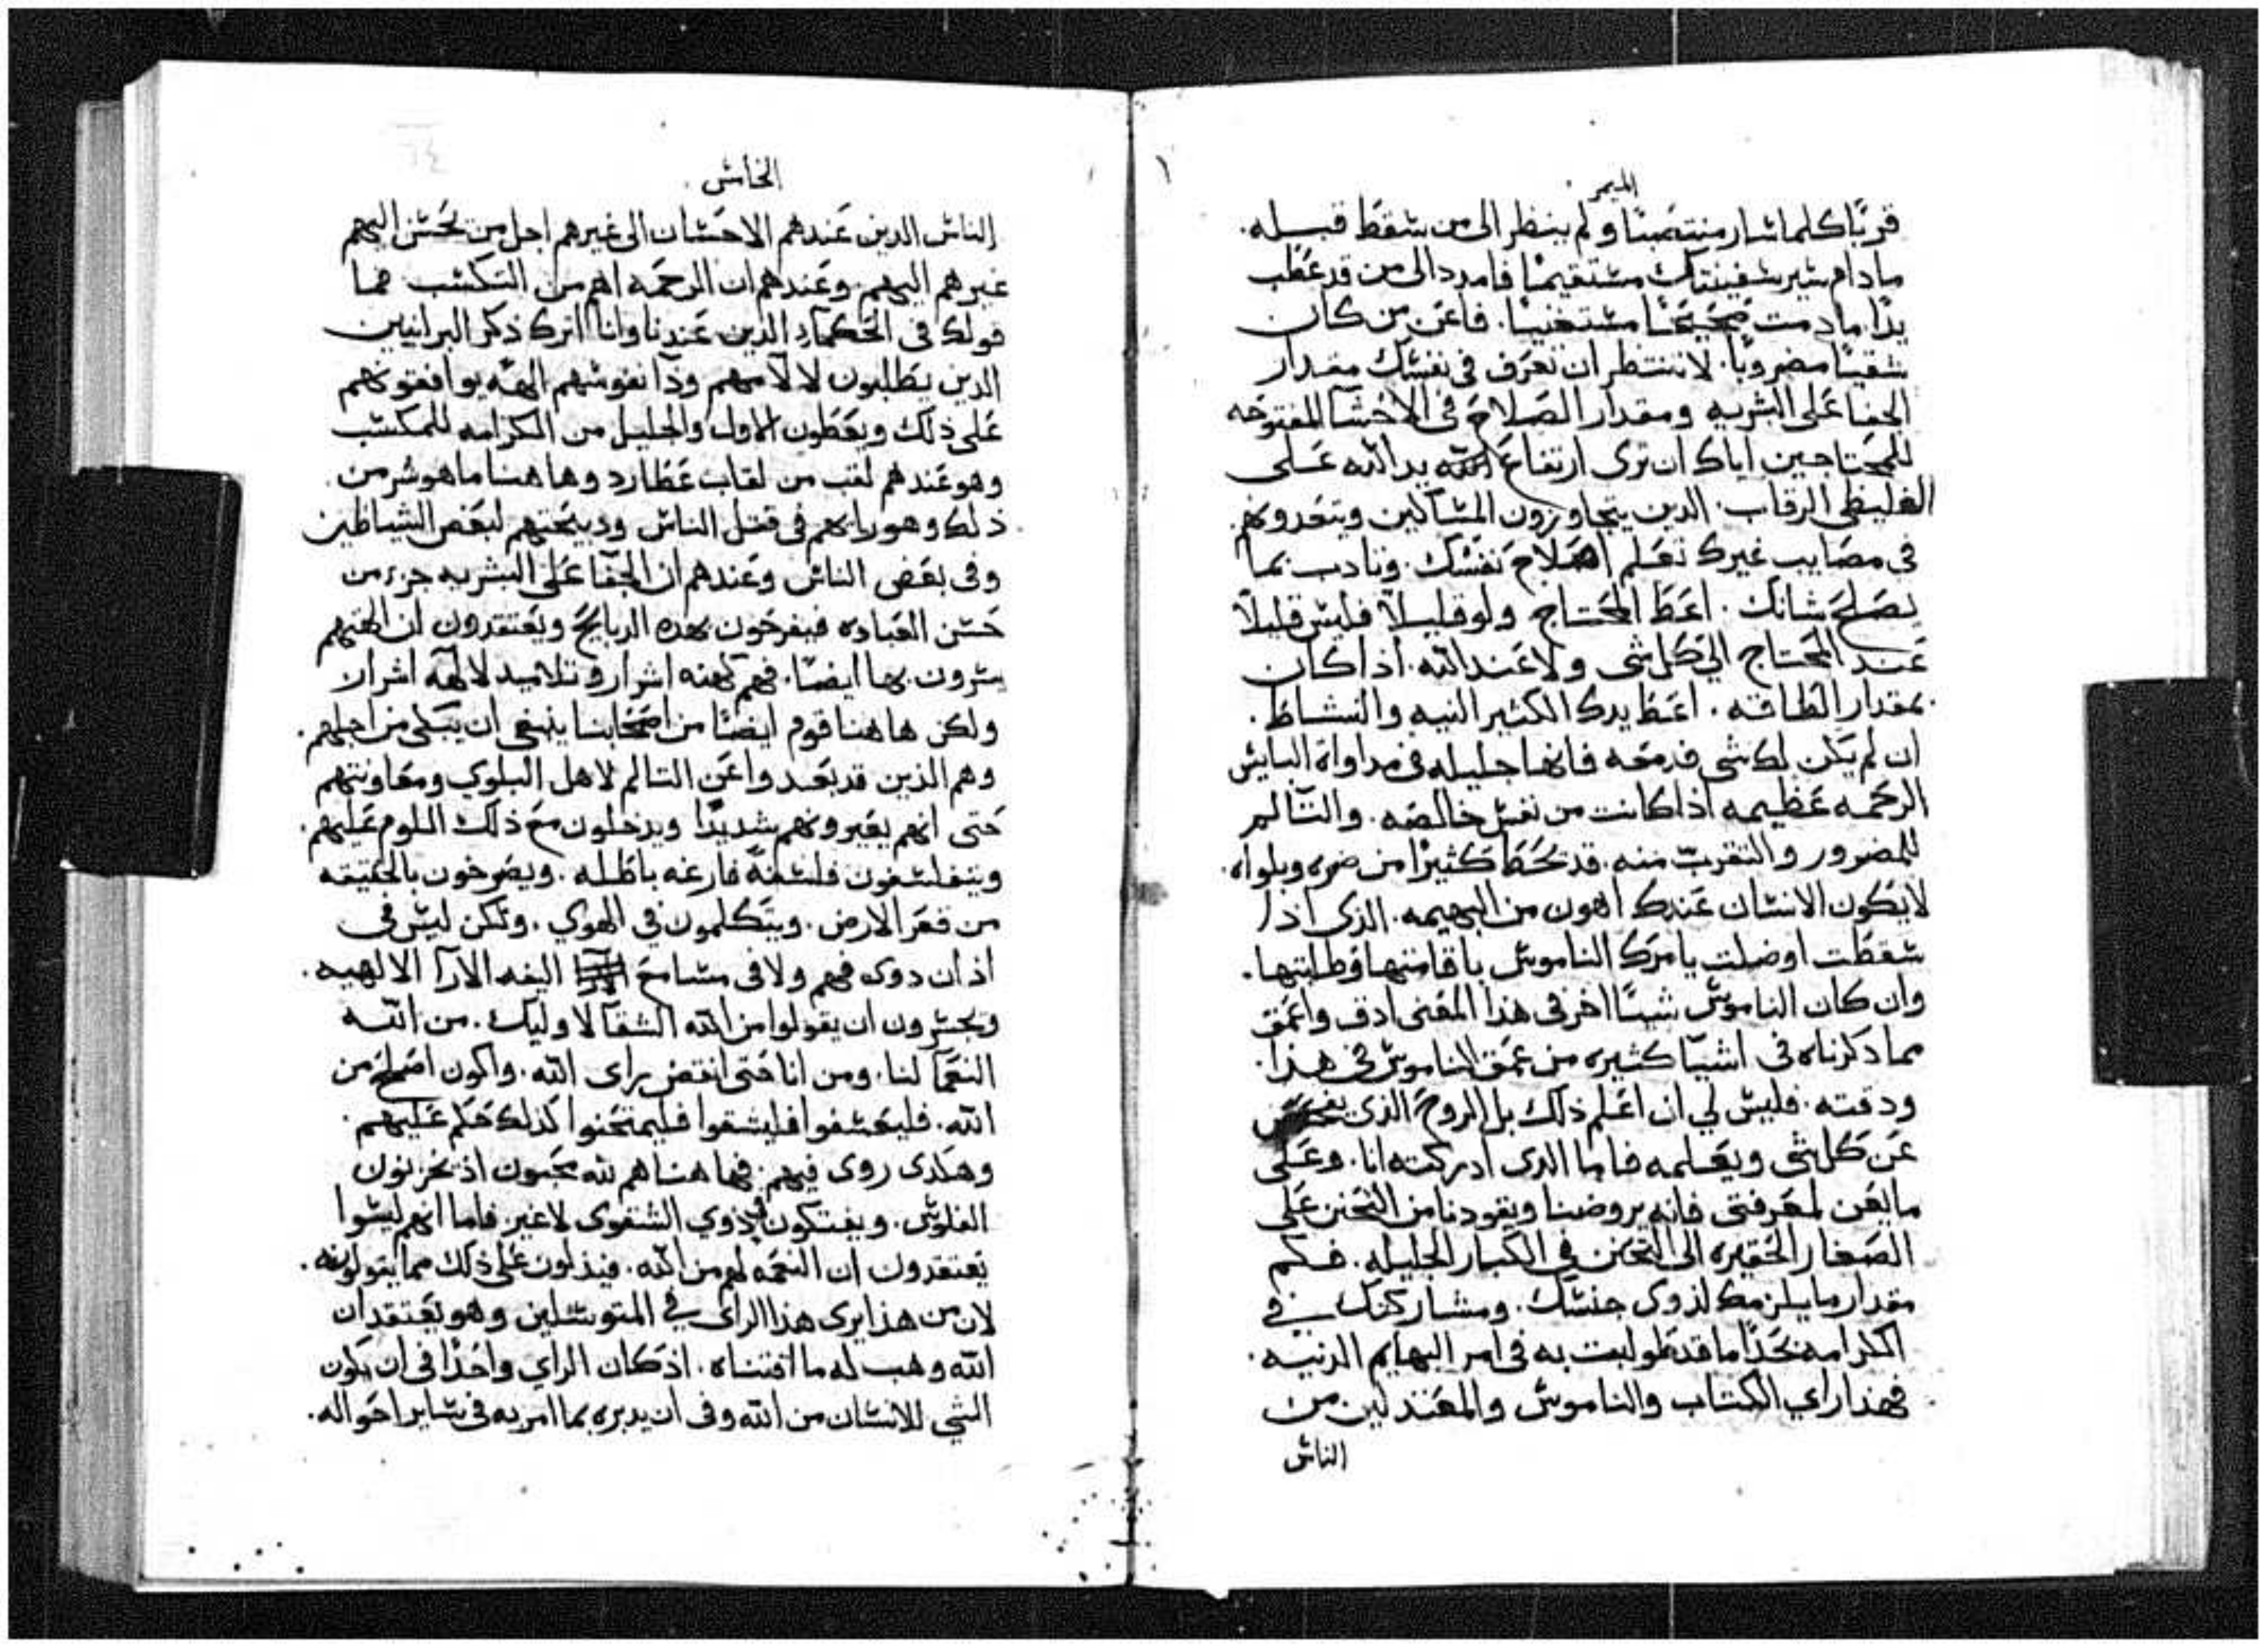 الميمر
قربًا كلما سار منتصبًا ولم ينظر الى من سقط قبله.
مادام سير سفينتك مستقيمًا فامدد الى من قد عطب
يدًا مادمت صحيحًا مستغنيًا. فاعن من كان
شقيًا مضروبًا. لا تنتظر ان تعرف في نفسك مقدار
الجفا على البشريه ومقدار الصلاح في الاحشا المفتوحه
للمحتاجين اياك ان ترى ارتفاع يد الله على
الغليظي الرقاب. الدين يتجاوزون المساكين ويتعدونهم.
في مصايب غيرك تعلم اصلاح نفسك. وتادب بما
يصلح شانك. اعط المحتاج ولو قليلاً فليس قليلاً
عند المحتاج الى كل شي ولا عند الله. اذا كان
بمقدار الطاقه. اعط يدك الكثير النيه والنشاط.
ان لم يكن لك شي فدمعه فانها جليله في مداواة البايس
الرحمه عظيمه اذا كانت من نفس خالصه. والتالم
للمضرور والتقرب منه. قد تحط كثيرًا من ضره وبلواه.
لا يكون الانسان عندك اهون من البهيمه. الذي اذا
سقطت او ضلت يامرك الناموس باقامتها وطلبتها.
وان كان الناموس شيئًا اخر في هذا المعنى ادق واعمق
مما دكرناه في اشيآ كثيره من عمق الناموس في هذا.
ودقته. فليس لي ان اعلم ذلك بل الروح الذي يفحص
عن كل شي ويعلمه فاما الدى ادركته انا. وعلى
ما يعن لمعرفتي فانه يروضنا ويقودنا من التحنن على
الصغار الحقيره الى التحنن في الكبار الجليله. فكم
مقدار ما يلزمك لذوى جنسك. ومشاركتك في
الكرامه نحدًا ما قد طولبت به في امر البهايم الدنيه.
فهذا راي الكتاب والناموس والمعتدلين من
الناس
الخامس
الناس الدين عندهم الاحسان الى غيرهم اجل من تحسن اليهم
غيرهم اليهم وعندهم ان الرحمه اهم من التكسب فما
قولك في الحكمآء الدين عندنا وانا اترك ذكر البرانيين
الدين يطلبون لالامهم وذآ نفوسهم الهه يوافقونهم
على ذلك ويعطون الاول والجليل من الكرامه للمكسب
وهو عندهم لقب من لقاب عطارد وها هنا ما هو شر من
ذلك وهو رايهم في قتل الناس ودبيحتهم لبعض الشياطين
وفي بعض الناس وعندهم ان الجفا على البشريه جزء من
حسن العباده فيفرحون بهده الدبايح ويعتقدون ان الهتهم
يسرون بها ايضًا. فهم كهنه اشرار وتلاميد لالهه اشرار
ولكن ها هنا قوم ايضًا من اصحابنا ينبغي ان يبكى من اجلهم.
وهم الذين قد بعدوا عن التالم لاهل البلوى ومعاونتهم
حتى انهم يعيرونهم شديدًا ويدخلون مع ذلك اللوم عليهم.
ويتفلسفون فلسفةً فارغه باطله. ويصرخون بالحقيقه
من قعر الارض. ويتكلمون في الهوي. ولكن ليس في
اذان دوى فهم ولا في مسامع اليفه الارآ الالهيه.
ويجسرون ان يقولوا من الله الشقآ لاوليك. من الله
النعمآ لنا. ومن انا حتى انقض راى الله. واكون اصلح من
الله. فليعسفوا فليشقوا فليمتحنوا كذلك حكم عليهم.
وهكدى روى فيهم. فها هنا هم لله محبون اذ يخزنون
الفلوس. ويفتكون في ذوي الشقوى لا غير. فاما انهم ليسوا
يعتقدون ان النعمه لهم من الله. فيدلون على ذلك مما يقولونه.
لان من هذا يرى هذا الراى في المتوسلين وهو يعتقد ان
الله وهب له ما اقتناه. اذ كان الراي واحدًا في ان يكون
الشي للانسان من الله وفي ان يدبره بما امر به في ساير احواله.